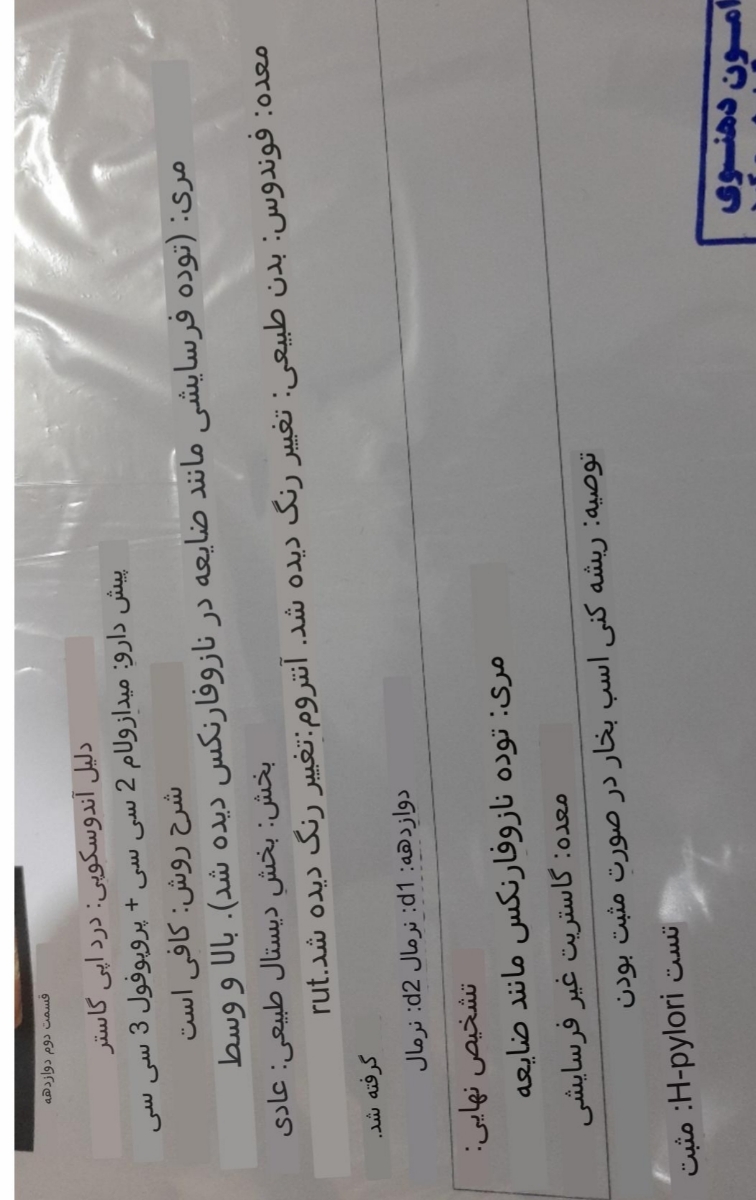 قسمت دوم دوازدهه
دلیل آندوسکوپی: درد اپی گاستر
پیش دارو: میدازولام 2 سی سی + پروپوفول 3 سی سی
شرح روش: کافی است
مری: (توده فرسایشی مانند ضایعه در نازوفارنکس دیده شد). بالا و وسط
بخش: بخش دیستال طبیعی: عادی
معده: فوندوس: بدن طبیعی: تغییر رنگ دیده شد. آنتروم:تغییر رنگ دیده شد.rut
گرفته شد.
دوازدهه: d1: نرمال d2: نرمال
تشخیص نهایی:
مری: توده نازوفارنکس مانند ضایعه
معده: گاستریت غیر فرسایشی
توصیه: ریشه کنی اسب بخار در صورت مثبت بودن
تست H-pylori: مثبت